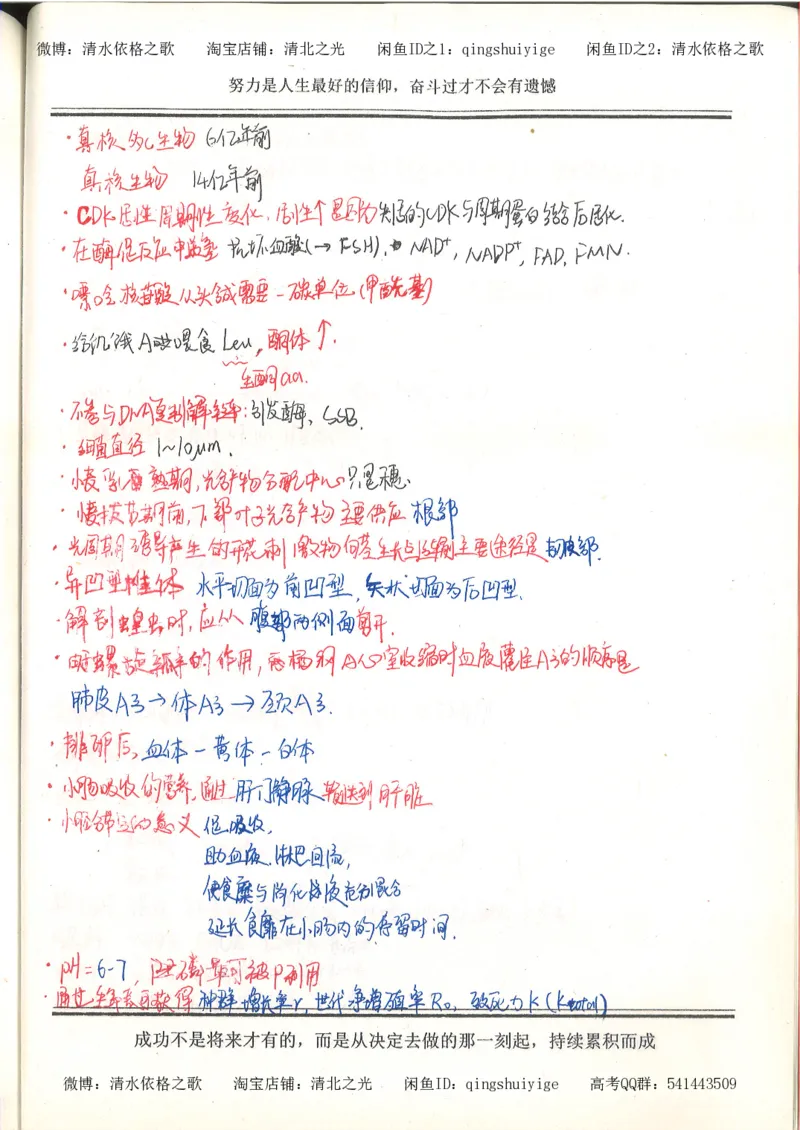 微博：清水依格之歌 淘宝店铺：清北之光 闲鱼ID之1：qingshuiyige 闲鱼ID之2：清水依格之歌
努力是人生最好的信仰，奋斗过才不会有遗憾
·真核多C生物 6亿年前
真核生物 14亿年前
·CDK活性周期性变化，活性个是因为失活的CDK与周期蛋白结合后活化.
·在酶促反应中 抗坏血酸(→FSH), NAD⁺, NADP⁺, FAD, FMN.
·嘌呤核苷酸从头合成需要一碳单位(甲酰基)
·给饥饿A 喂食Leu, 酮体↑.
生酮aa.
·不参与DNA复制解链: 引发酶, SSB.
·细菌直径 1~10μm.
·小麦乳熟期, 光合产物分配中心只是穗.
·小麦拔节期前, 下部叶子光合产物主要供应 根部
·光周期诱导产生的开花刺激物向茎生长点运输主要途径是韧皮部.
·异凹型椎体 水平切面为前凹型, 矢状切面为后凹型.
·解剖蝗虫时, 应从 腹部两侧面剪开.
·由于螺旋瓣的作用, 两栖纲A心室收缩时血液灌注A弓的顺序是
肺皮A弓→体A弓→颈A弓.
·排卵后, 血体－黄体－白体
·小肠吸收的营养, 通过 肝门静脉 输送到肝脏
·小肠分节运动意义 促吸收,
助血液.淋巴回流,
使食糜与消化液充分混合
延长食糜在小肠内的停留时间.
·pH=6-7, 磷最可被P利用
·通过生命表可获得 种群增长率r, 世代净增殖率R₀, 致死力K(Ktotal)
成功不是将来才有的，而是从决定去做的那一刻起，持续累积而成
微博：清水依格之歌 淘宝店铺：清北之光 闲鱼ID：qingshuiyige 高考QQ群：541443509